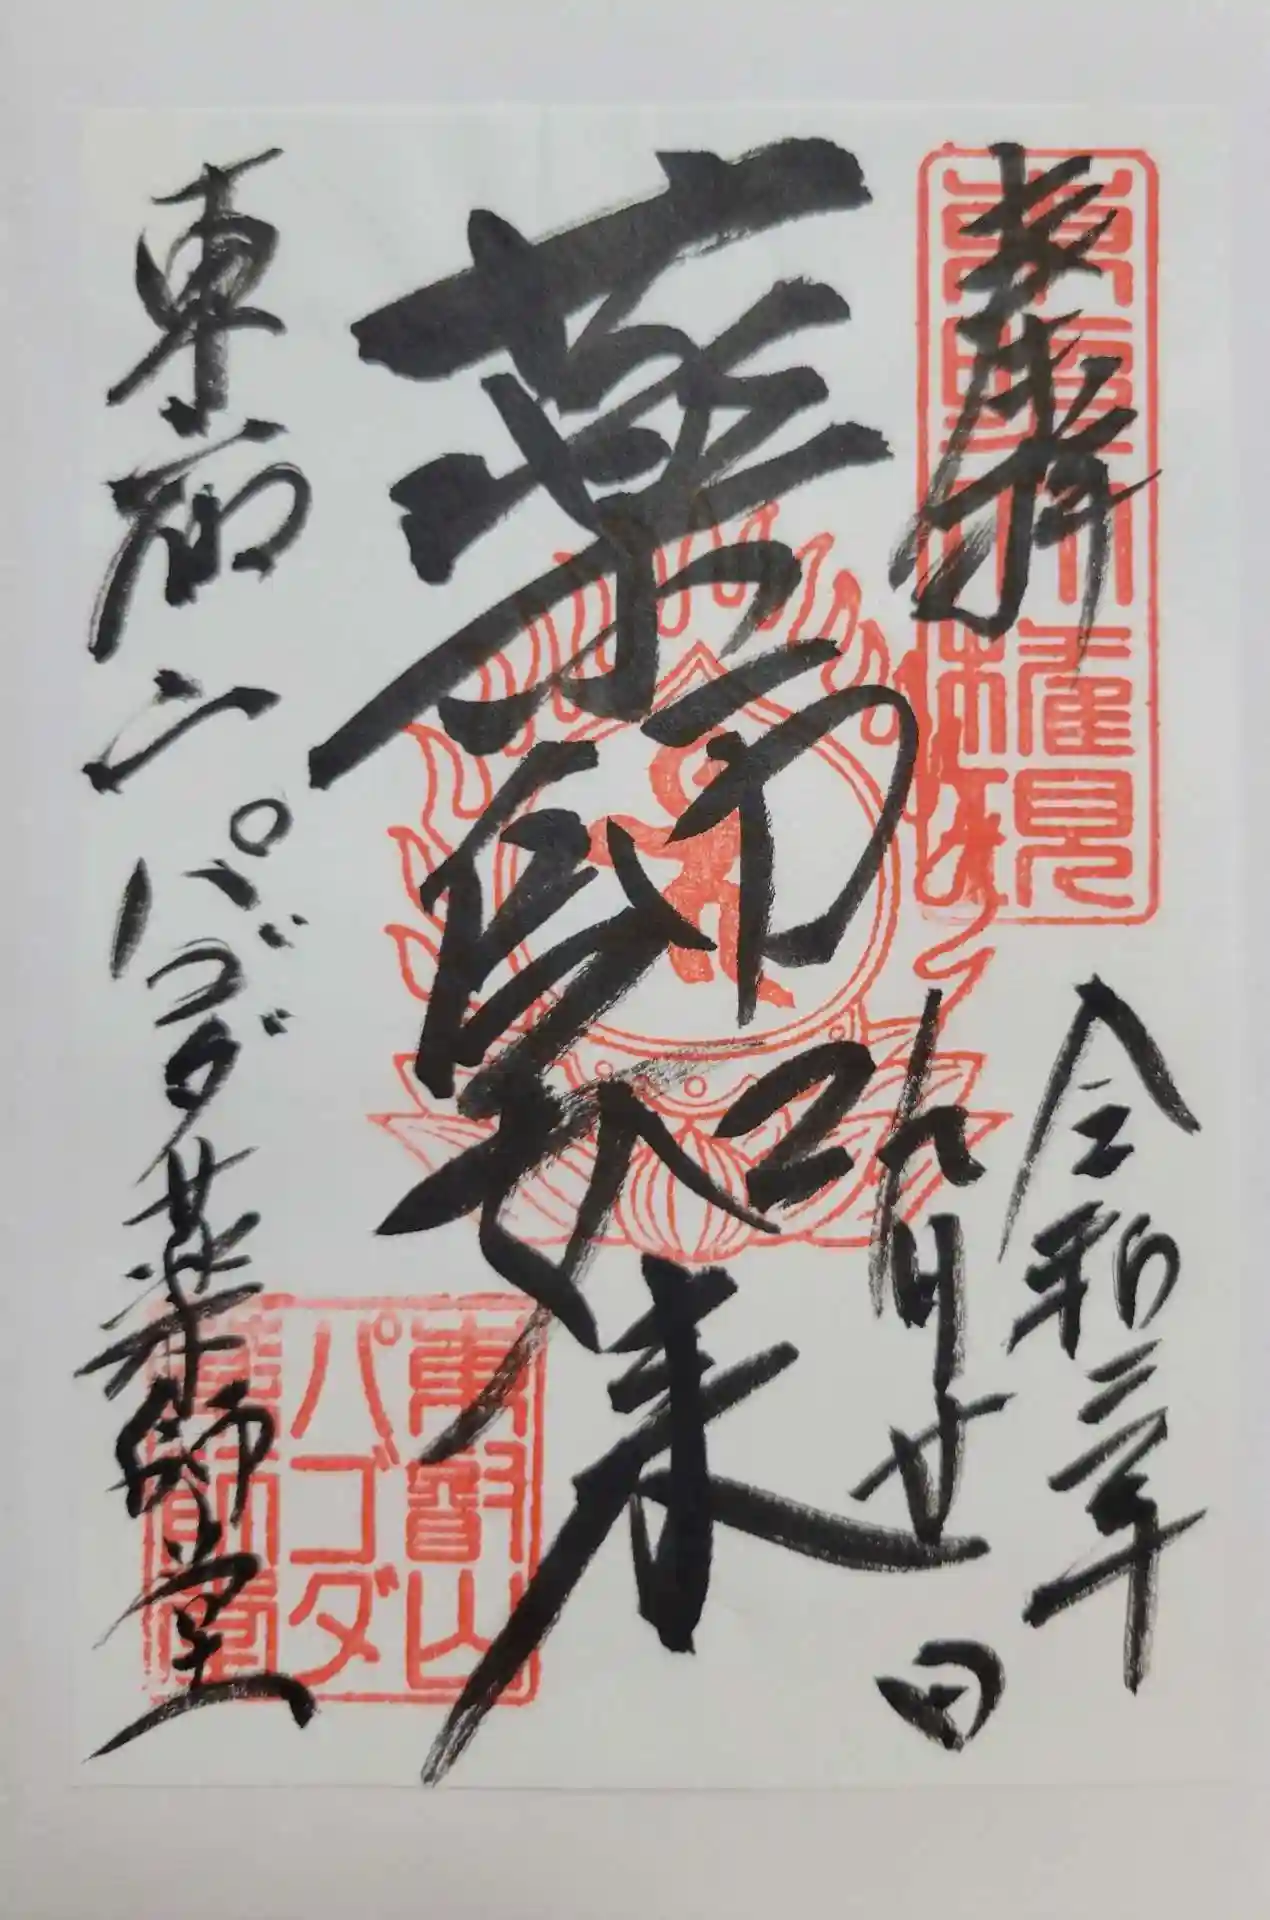 奉拝
東照大権現
令和二年
九月廿日
薬師如来
東叡山パゴダ薬師堂
東叡山
パゴダ
薬師堂